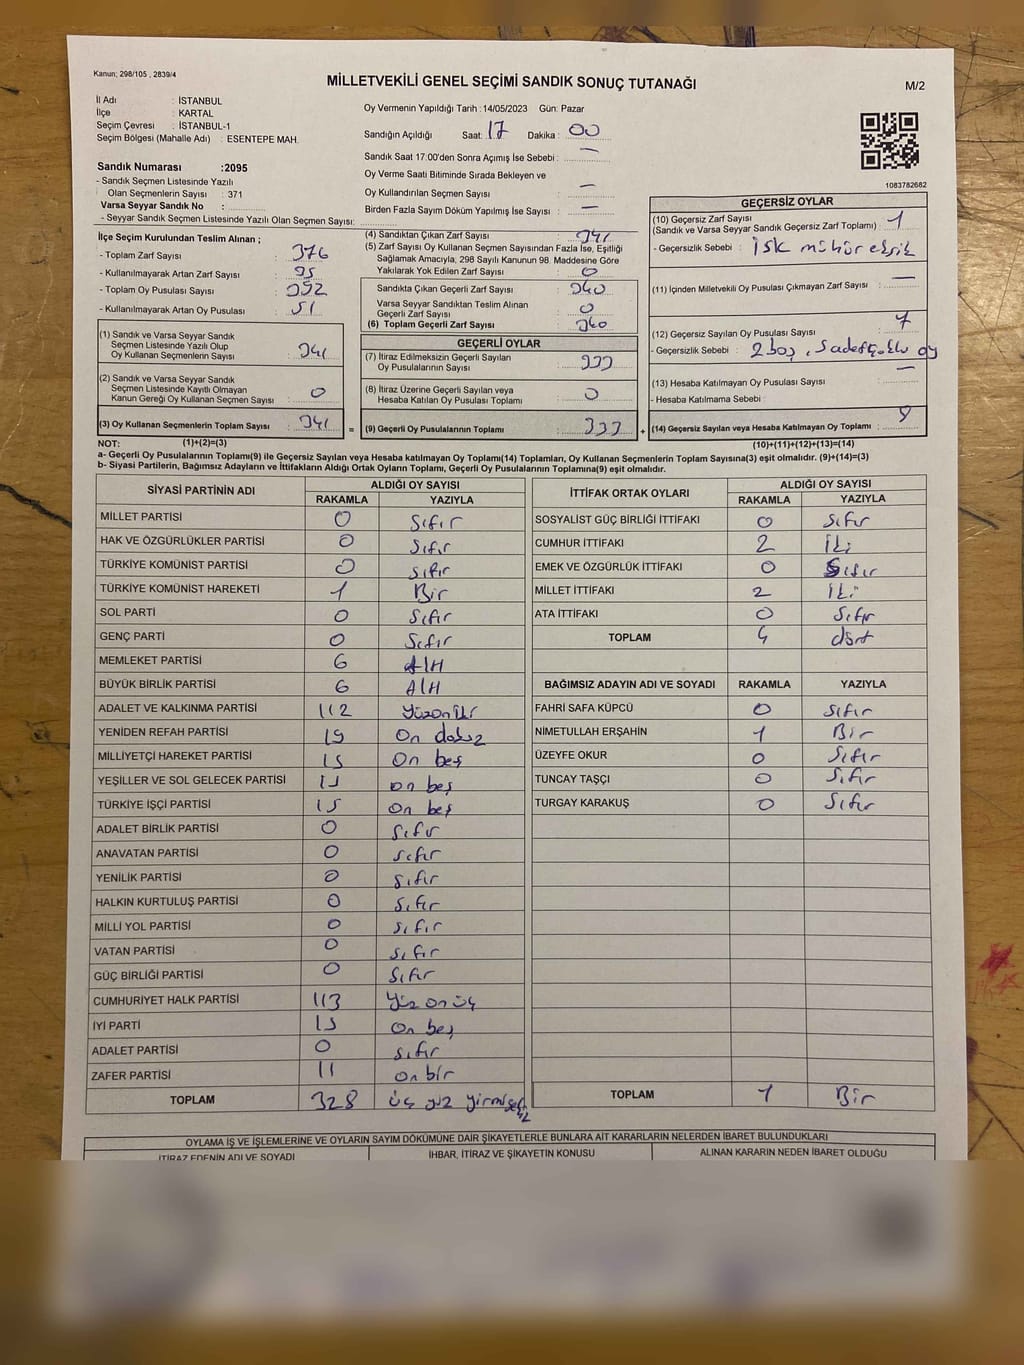 Kanun; 298/105 , 2839/4
MİLLETVEKİLİ GENEL SEÇİMİ SANDIK SONUÇ TUTANAĞI
M/2
İl Adı : İSTANBUL
İlçe : KARTAL
Seçim Çevresi : İSTANBUL-1
Seçim Bölgesi (Mahalle Adı) : ESENTEPE MAH.
Sandık Numarası :2095
- Sandık Seçmen Listesinde Yazılı
Olan Seçmenlerin Sayısı : 371
Varsa Seyyar Sandık No :
- Seyyar Sandık Seçmen Listesinde Yazılı Olan Seçmen Sayısı:
Oy Vermenin Yapıldığı Tarih :14/05/2023 Gün: Pazar
Sandığın Açıldığı Saat: 17 Dakika : 00
Sandık Saat 17:00'den Sonra Açımış İse Sebebi : —
Oy Verme Saati Bitiminde Sırada Bekleyen ve
Oy Kullandırılan Seçmen Sayısı : —
Birden Fazla Sayım Döküm Yapılmış İse Sayısı : —
1083782682
İlçe Seçim Kurulundan Teslim Alınan ;
- Toplam Zarf Sayısı : 376
- Kullanılmayarak Artan Zarf Sayısı : 35
- Toplam Oy Pusulası Sayısı : 392
- Kullanılmayarak Artan Oy Pusulası : 51
(1) Sandık ve Varsa Seyyar Sandık
Seçmen Listesinde Yazılı Olup
Oy Kullanan Seçmenlerin Sayısı : 341
(2) Sandık ve Varsa Seyyar Sandık
Seçmen Listesinde Kayıtlı Olmayan
Kanun Gereği Oy Kullanan Seçmen Sayısı : 0
(3) Oy Kullanan Seçmenlerin Toplam Sayısı : 341
(4) Sandıktan Çıkan Zarf Sayısı : 341
(5) Zarf Sayısı Oy Kullanan Seçmen Sayısından Fazla İse, Eşitliği
Sağlamak Amacıyla, 298 Sayılı Kanunun 98. Maddesine Göre
Yakılarak Yok Edilen Zarf Sayısı : 0
Sandıkta Çıkan Geçerli Zarf Sayısı : 340
Varsa Seyyar Sandıktan Teslim Alınan
Geçerli Zarf Sayısı : 0
(6) Toplam Geçerli Zarf Sayısı : 340
GEÇERLİ OYLAR
(7) İtiraz Edilmeksizin Geçerli Sayılan
Oy Pusulalarının Sayısı : 333
(8) İtiraz Üzerine Geçerli Sayılan veya
Hesaba Katılan Oy Pusulası Toplamı : 0
= (9) Geçerli Oy Pusulalarının Toplamı : 333 +
GEÇERSİZ OYLAR
(10) Geçersiz Zarf Sayısı : 1
(Sandık ve Varsa Seyyar Sandık Geçersiz Zarf Toplamı)
- Geçersizlik Sebebi : İSK mühür eksik
(11) İçinden Milletvekili Oy Pusulası Çıkmayan Zarf Sayısı : —
(12) Geçersiz Sayılan Oy Pusulası Sayısı : 7
- Geçersizlik Sebebi : 2 boş, 5 adet çoklu oy
(13) Hesaba Katılmayan Oy Pusulası Sayısı : —
- Hesaba Katılmama Sebebi :
(14) Geçersiz Sayılan veya Hesaba Katılmayan Oy Toplamı : 8
NOT: (1)+(2)=(3) (10)+(11)+(12)+(13)=(14)
a- Geçerli Oy Pusulalarının Toplamı(9) ile Geçersiz Sayılan veya Hesaba katılmayan Oy Toplamı(14) Toplamları, Oy Kullanan Seçmenlerin Toplam Sayısına(3) eşit olmalıdır. (9)+(14)=(3)
b- Siyasi Partilerin, Bağımsız Adayların ve İttifakların Aldığı Ortak Oyların Toplamı, Geçerli Oy Pusulalarının Toplamına(9) eşit olmalıdır.
SİYASİ PARTİNİN ADI ALDIĞI OY SAYISI
RAKAMLA YAZIYLA
MİLLET PARTİSİ 0 Sıfır
HAK VE ÖZGÜRLÜKLER PARTİSİ 0 Sıfır
TÜRKİYE KOMÜNİST PARTİSİ 0 Sıfır
TÜRKİYE KOMÜNİST HAREKETİ 1 Bir
SOL PARTİ 0 Sıfır
GENÇ PARTİ 0 Sıfır
MEMLEKET PARTİSİ 6 Altı
BÜYÜK BİRLİK PARTİSİ 6 Altı
ADALET VE KALKINMA PARTİSİ 112 Yüzoniki
YENİDEN REFAH PARTİSİ 19 On dokuz
MİLLİYETÇİ HAREKET PARTİSİ 15 On beş
YEŞİLLER VE SOL GELECEK PARTİSİ 15 On beş
TÜRKİYE İŞÇİ PARTİSİ 15 On beş
ADALET BİRLİK PARTİSİ 0 Sıfır
ANAVATAN PARTİSİ 0 Sıfır
YENİLİK PARTİSİ 0 Sıfır
HALKIN KURTULUŞ PARTİSİ 0 Sıfır
MİLLİ YOL PARTİSİ 0 Sıfır
VATAN PARTİSİ 0 Sıfır
GÜÇ BİRLİĞİ PARTİSİ 0 Sıfır
CUMHURİYET HALK PARTİSİ 113 Yüz on üç
İYİ PARTİ 15 On beş
ADALET PARTİSİ 0 Sıfır
ZAFER PARTİSİ 11 On bir
TOPLAM 328 üç yüz yirmisekiz
İTTİFAK ORTAK OYLARI ALDIĞI OY SAYISI
RAKAMLA YAZIYLA
SOSYALİST GÜÇ BİRLİĞİ İTTİFAKI 0 Sıfır
CUMHUR İTTİFAKI 2 İki
EMEK VE ÖZGÜRLÜK İTTİFAKI 0 Sıfır
MİLLET İTTİFAKI 2 İki
ATA İTTİFAKI 0 Sıfır
TOPLAM 4 dört
BAĞIMSIZ ADAYIN ADI VE SOYADI RAKAMLA YAZIYLA
FAHRİ SAFA KÜPCÜ 0 Sıfır
NİMETULLAH ERŞAHİN 1 Bir
ÜZEYFE OKUR 0 Sıfır
TUNCAY TAŞÇI 0 Sıfır
TURGAY KARAKUŞ 0 Sıfır
TOPLAM 1 Bir
OYLAMA İŞ VE İŞLEMLERİNE VE OYLARIN SAYIM DÖKÜMÜNE DAİR ŞİKAYETLERLE BUNLARA AİT KARARLARIN NELERDEN İBARET BULUNDUKLARI
İTİRAZ EDENİN ADI VE SOYADI İHBAR, İTİRAZ VE ŞİKAYETİN KONUSU ALINAN KARARIN NEDEN İBARET OLDUĞU